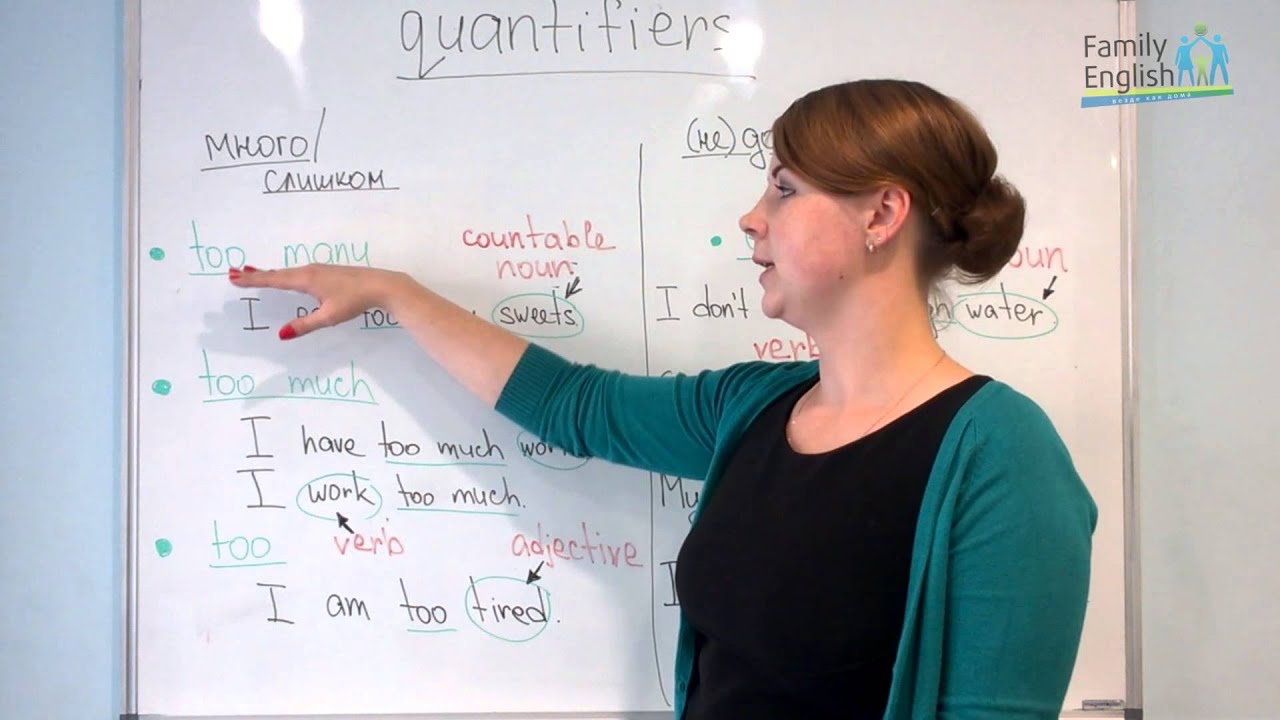 quantifiers
Family
English
везде как дома
много/
слишком
too many
countable
noun
I too sweets.
too much
I have too much
I work too much.
verb
too
adjective
I am too tired.
(не)
noun
I don't water
verb
My
I